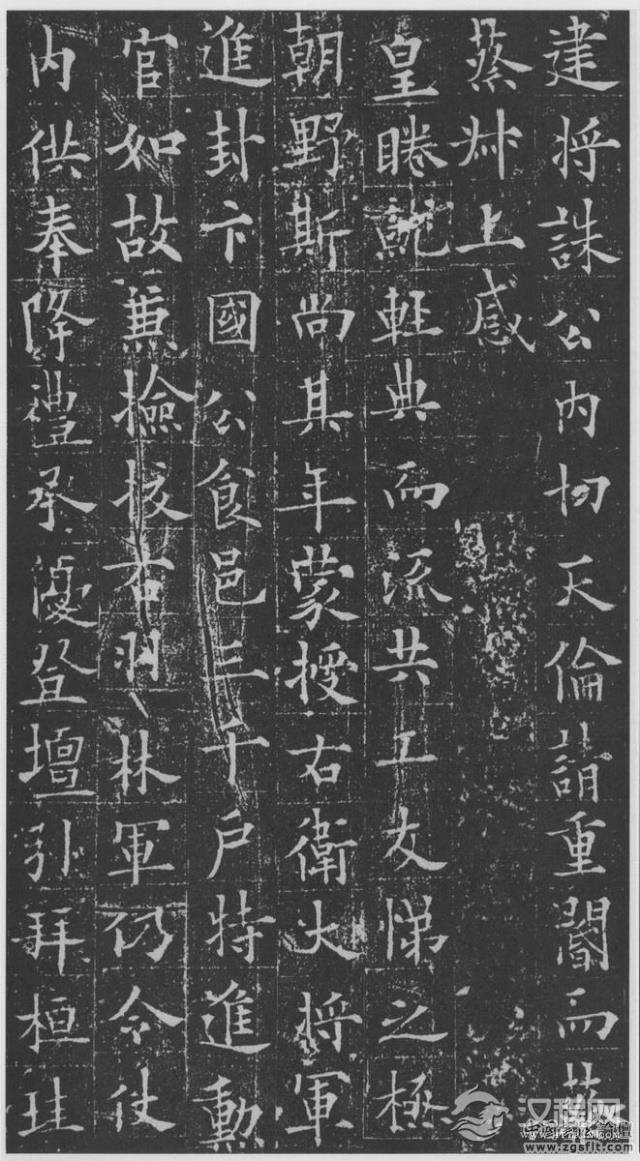 建將誅公内切天倫請重閽而蔡
蔡叔上感
皇睠就輕典而流共工友悌之極
朝野斯尚其年蒙授右衛大將軍
進封卞國公食邑三千戶特進勳
官如故兼檢校右羽林軍仍令仗
内供奉降禮承優登壇引拜桓珪
汉程网
www.zgsflt.com